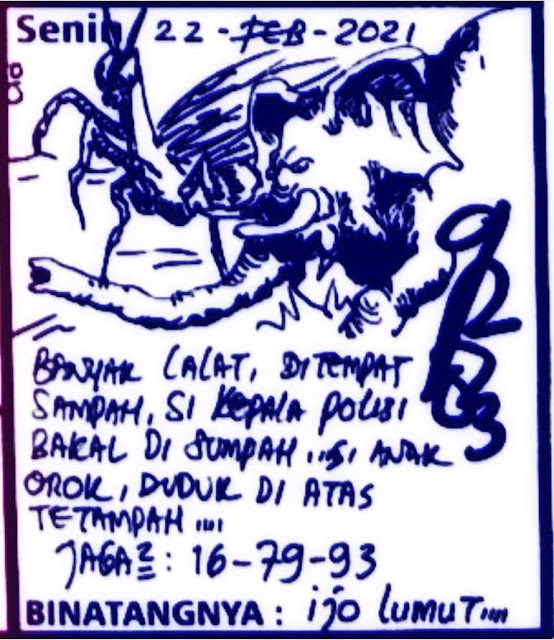 Senin 22-FEB-2021
BANYAK LALAT, DITEMPAT
SAMPAH, SI KEPALA POLISI
BAKAL DI SUMPAH ...SI ANAK
OROK, DUDUK DI ATAS
TETAMPAH ....
JAGA2 : 16-79-93
BINATANGNYA : ijo LUMUT....